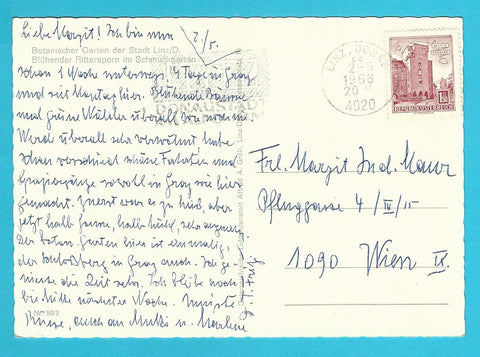 Liebe Margit! Ich bin nun
2/5.
Botanischer Garten der Stadt Linz/D.
Blühender Rittersporn im Schmuckgarten
schon 1 Woche unterwegs, 4 Tage in Graz
und seit Montag hier. Blühende Bäume
und grüne Wälder überall
überall sehr verwöhnt habe
schon schöne Fahrten und
Spaziergänge sowohl in Graz wie hier
gemacht. Zuerst war es zu heiß, aber
jetzt halb Sonne, halb kühl, sehr angenehm.
Der Botan. Garten hier ist einmalig,
der Schloßberg in Graz auch. Ich ge-
niesse die Zeit sehr. Ich bleibe noch
bis Mitte nächster Woche.
auch an Mutti u.
Nr. 50/2
LINZ, DONAU
2.-5.
1968
20
4020
DONAUSTADT
REPUBLIK ÖSTERREICH
Frl. Margit Ind. Maur
Pfluggasse 4/IV/15
1090 Wien IX.